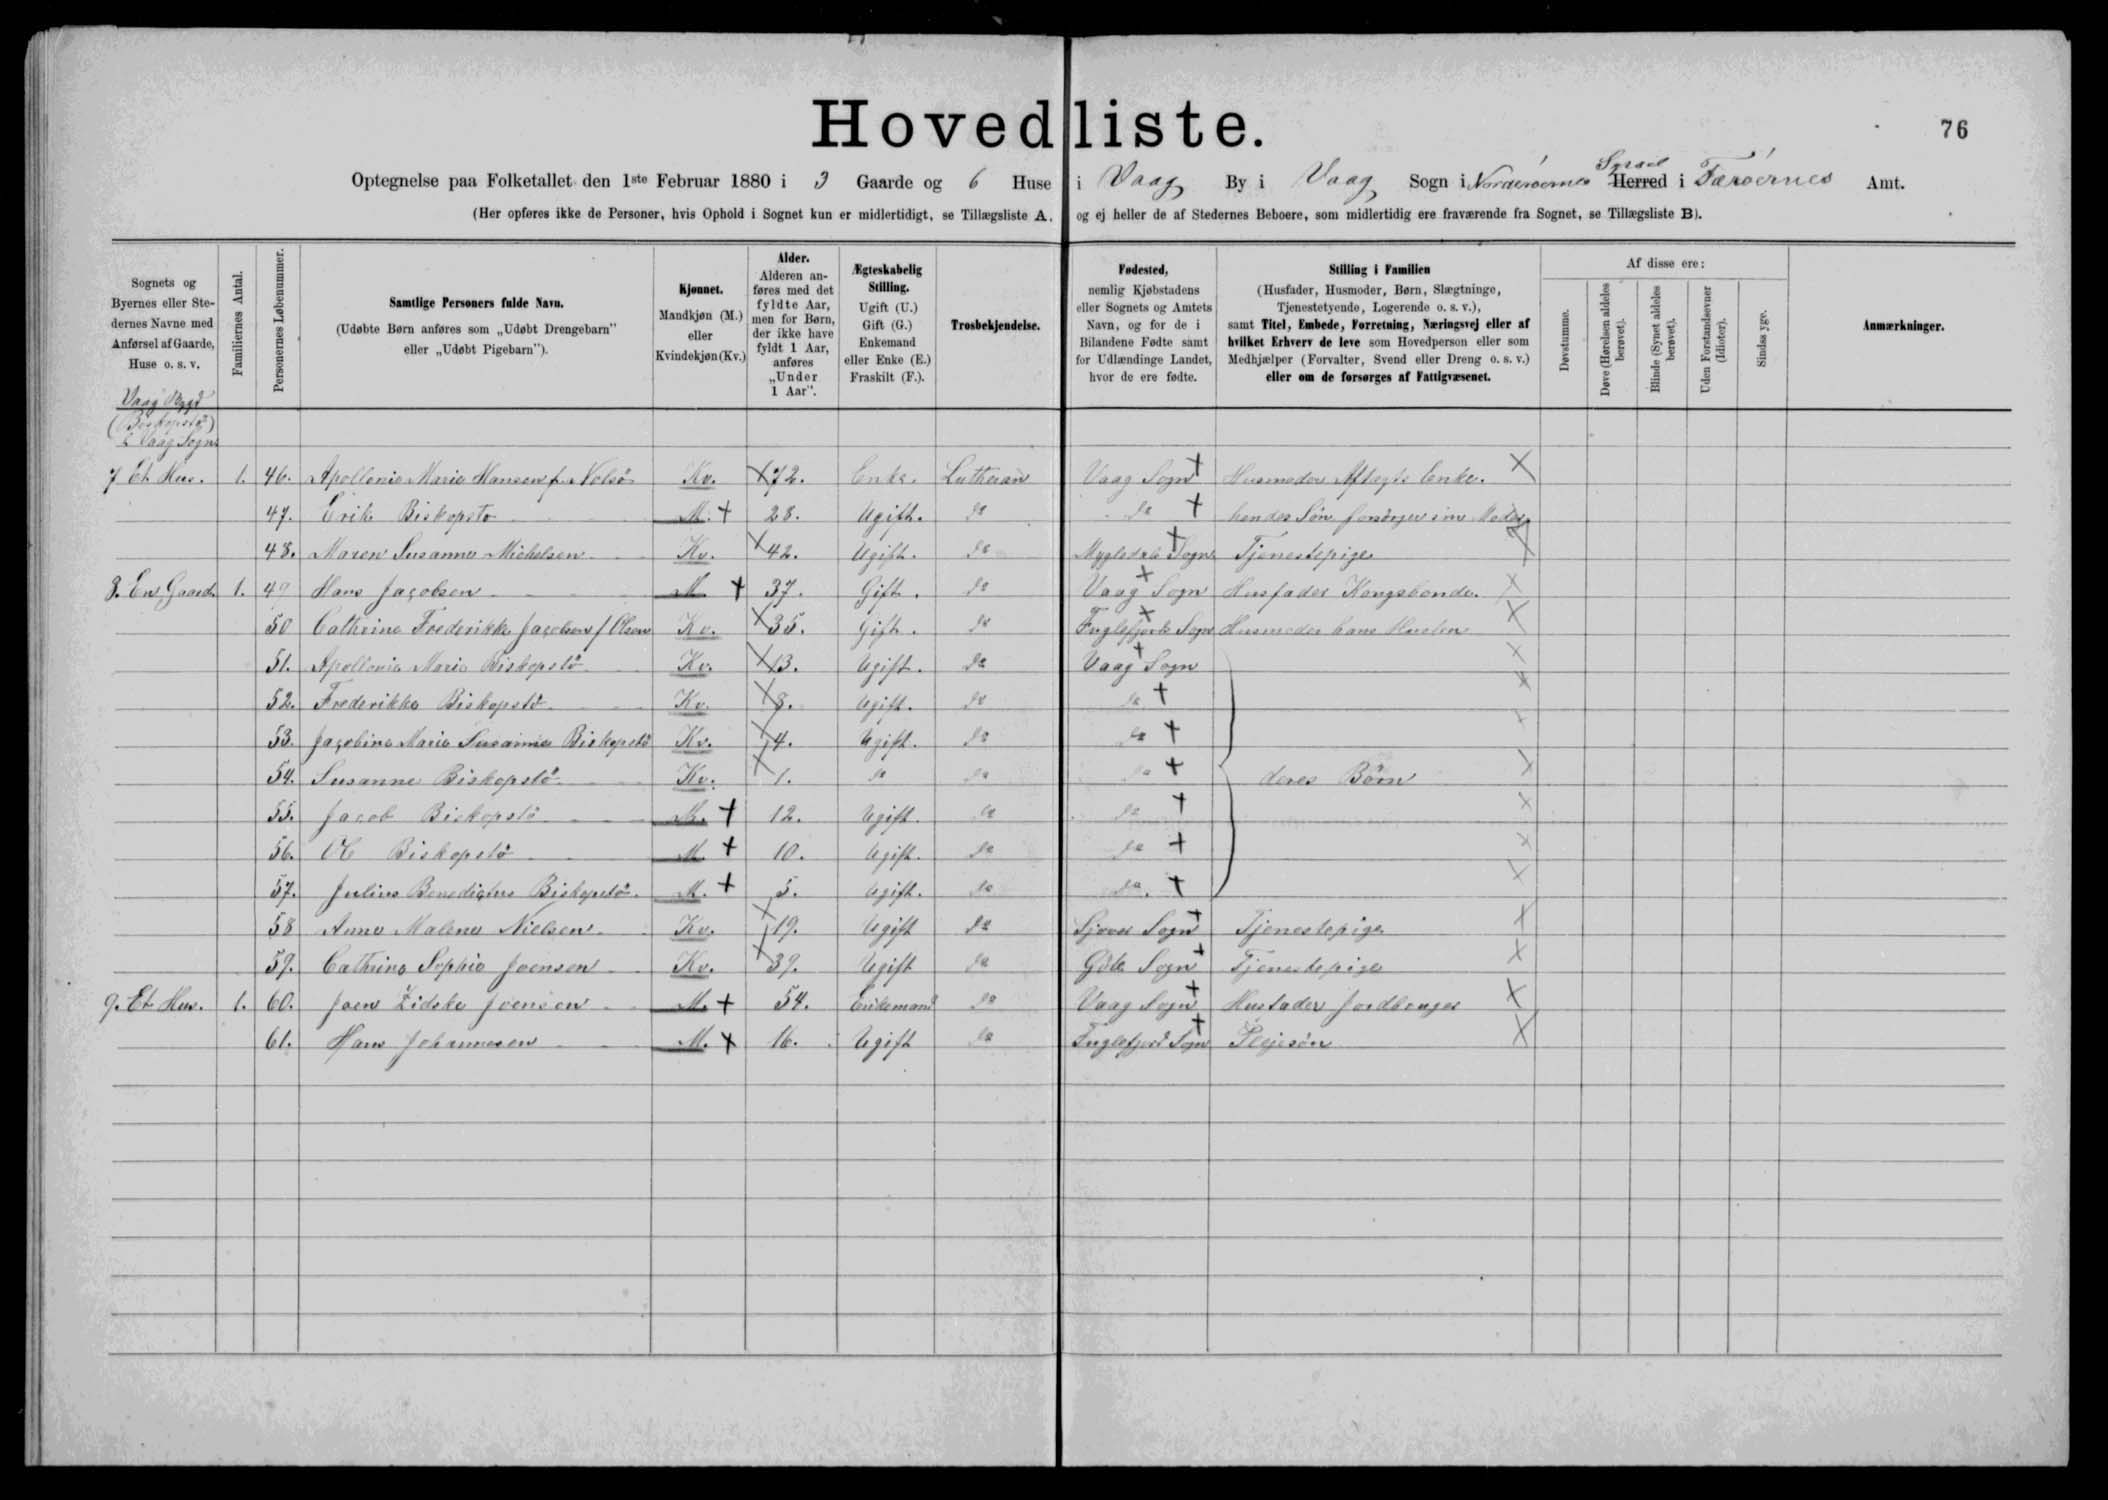 Hovedliste.
76
Optegnelse paa Folketallet den 1ste Februar 1880 i 3 Gaarde og 6 Huse i Vaag By i Vaag Sogn i Norderoernes Syssel Herred i Færøernes Amt.
(Her opføres ikke de Personer, hvis Ophold i Sognet kun er midlertidigt, se Tillægsliste A, og ej heller de af Stedernes Beboere, som midlertidig ere fraværende fra Sognet, se Tillægsliste B).
Sognets og Byernes eller Stedernes Navne med Anførsel af Gaarde, Huse o. s. v.
Familiernes Antal.
Personernes Løbenummer.
Samtlige Personers fulde Navn.
(Udøbte Børn anføres som „Udøbt Drengebarn" eller „Udøbt Pigebarn").
Kjønnet.
Mandkjøn (M.) eller Kvindekjøn (Kv.)
Alder.
Alderen anføres med det fyldte Aar, men for Børn, der ikke have fyldt 1 Aar, anføres „Under 1 Aar".
Ægteskabelig Stilling.
Ugift (U.) Gift (G.) Enkemand eller Enke (E.) Fraskilt (F.).
Trosbekjendelse.
Fødested,
nemlig Kjøbstadens eller Sognets og Amtets Navn, og for de i Bilandene Fødte samt for Udlændinge Landet, hvor de ere fødte.
Stilling i Familien
(Husfader, Husmoder, Børn, Slægtninge, Tjenestetyende, Logerende o. s. v.),
samt Titel, Embede, Forretning, Næringsvej eller af hvilket Erhverv de leve som Hovedperson eller som Medhjælper (Forvalter, Svend eller Dreng o. s. v.) eller om de forsørges af Fattigvæsenet.
Af disse ere:
Døvstumme.
Døve (Hørelsen aldeles berøvet).
Blinde (Synet aldeles berøvet).
Uden Forstandsevner (Idioter).
Sindssyge.
Anmærkninger.
Vaag Bygd
(Biskopstø)
i Vaag Sogn
7 Et Hus. 1. 46. Apollonia Maria Hansen f. Nolsø Kv. 72. Enke. Lutheran Vaag Sogn Husmoder Aftægts Enke.
47. Erik Biskopstø M. 28. Ugift. do do hendes Søn forsørger sin Moder
48. Maren Susanna Michelsen Kv. 42. Ugift. do Mygledals Sogn Tjenestepige
8. En Gaard. 1. 49 Hans Jacobsen M 37. Gift. do Vaag Sogn Husfader Kongsbonde.
50 Cathrine Frederikke Jacobsen f Olsen Kv. 35. Gift. do Fuglefjords Sogn Husmoder hans Hustru
51. Apollonia Maria Biskopstø Kv. 13. Ugift. do Vaag Sogn
52. Frederikka Biskopstø Kv. 8. Ugift. do do
53. Jacobina Maria Susanna Biskopstø Kv. 4. Ugift. do do
54. Susanne Biskopstø Kv. 1. do do do deres Børn
55. Jacob Biskopstø M. 12. Ugift. do do
56. Ole Biskopstø M. 10. Ugift. do do
57. Julius Benedictus Biskopstø. M. 5. Ugift. do do.
58 Anna Malena Nielsen Kv. 19. Ugift do Sjovs Sogn Tjenestepige
59. Cathrina Sophia Joensen Kv. 39. Ugift do Gøte Sogn Tjenestepige
9. Et Hus. 1. 60. Joen Zidske Joensen M. 54. Enkemand do Vaag Sogn Husfader Jordbruger
61. Hans Johannesen M. 16. Ugift do Fuglefjord Sogn Plejesøn